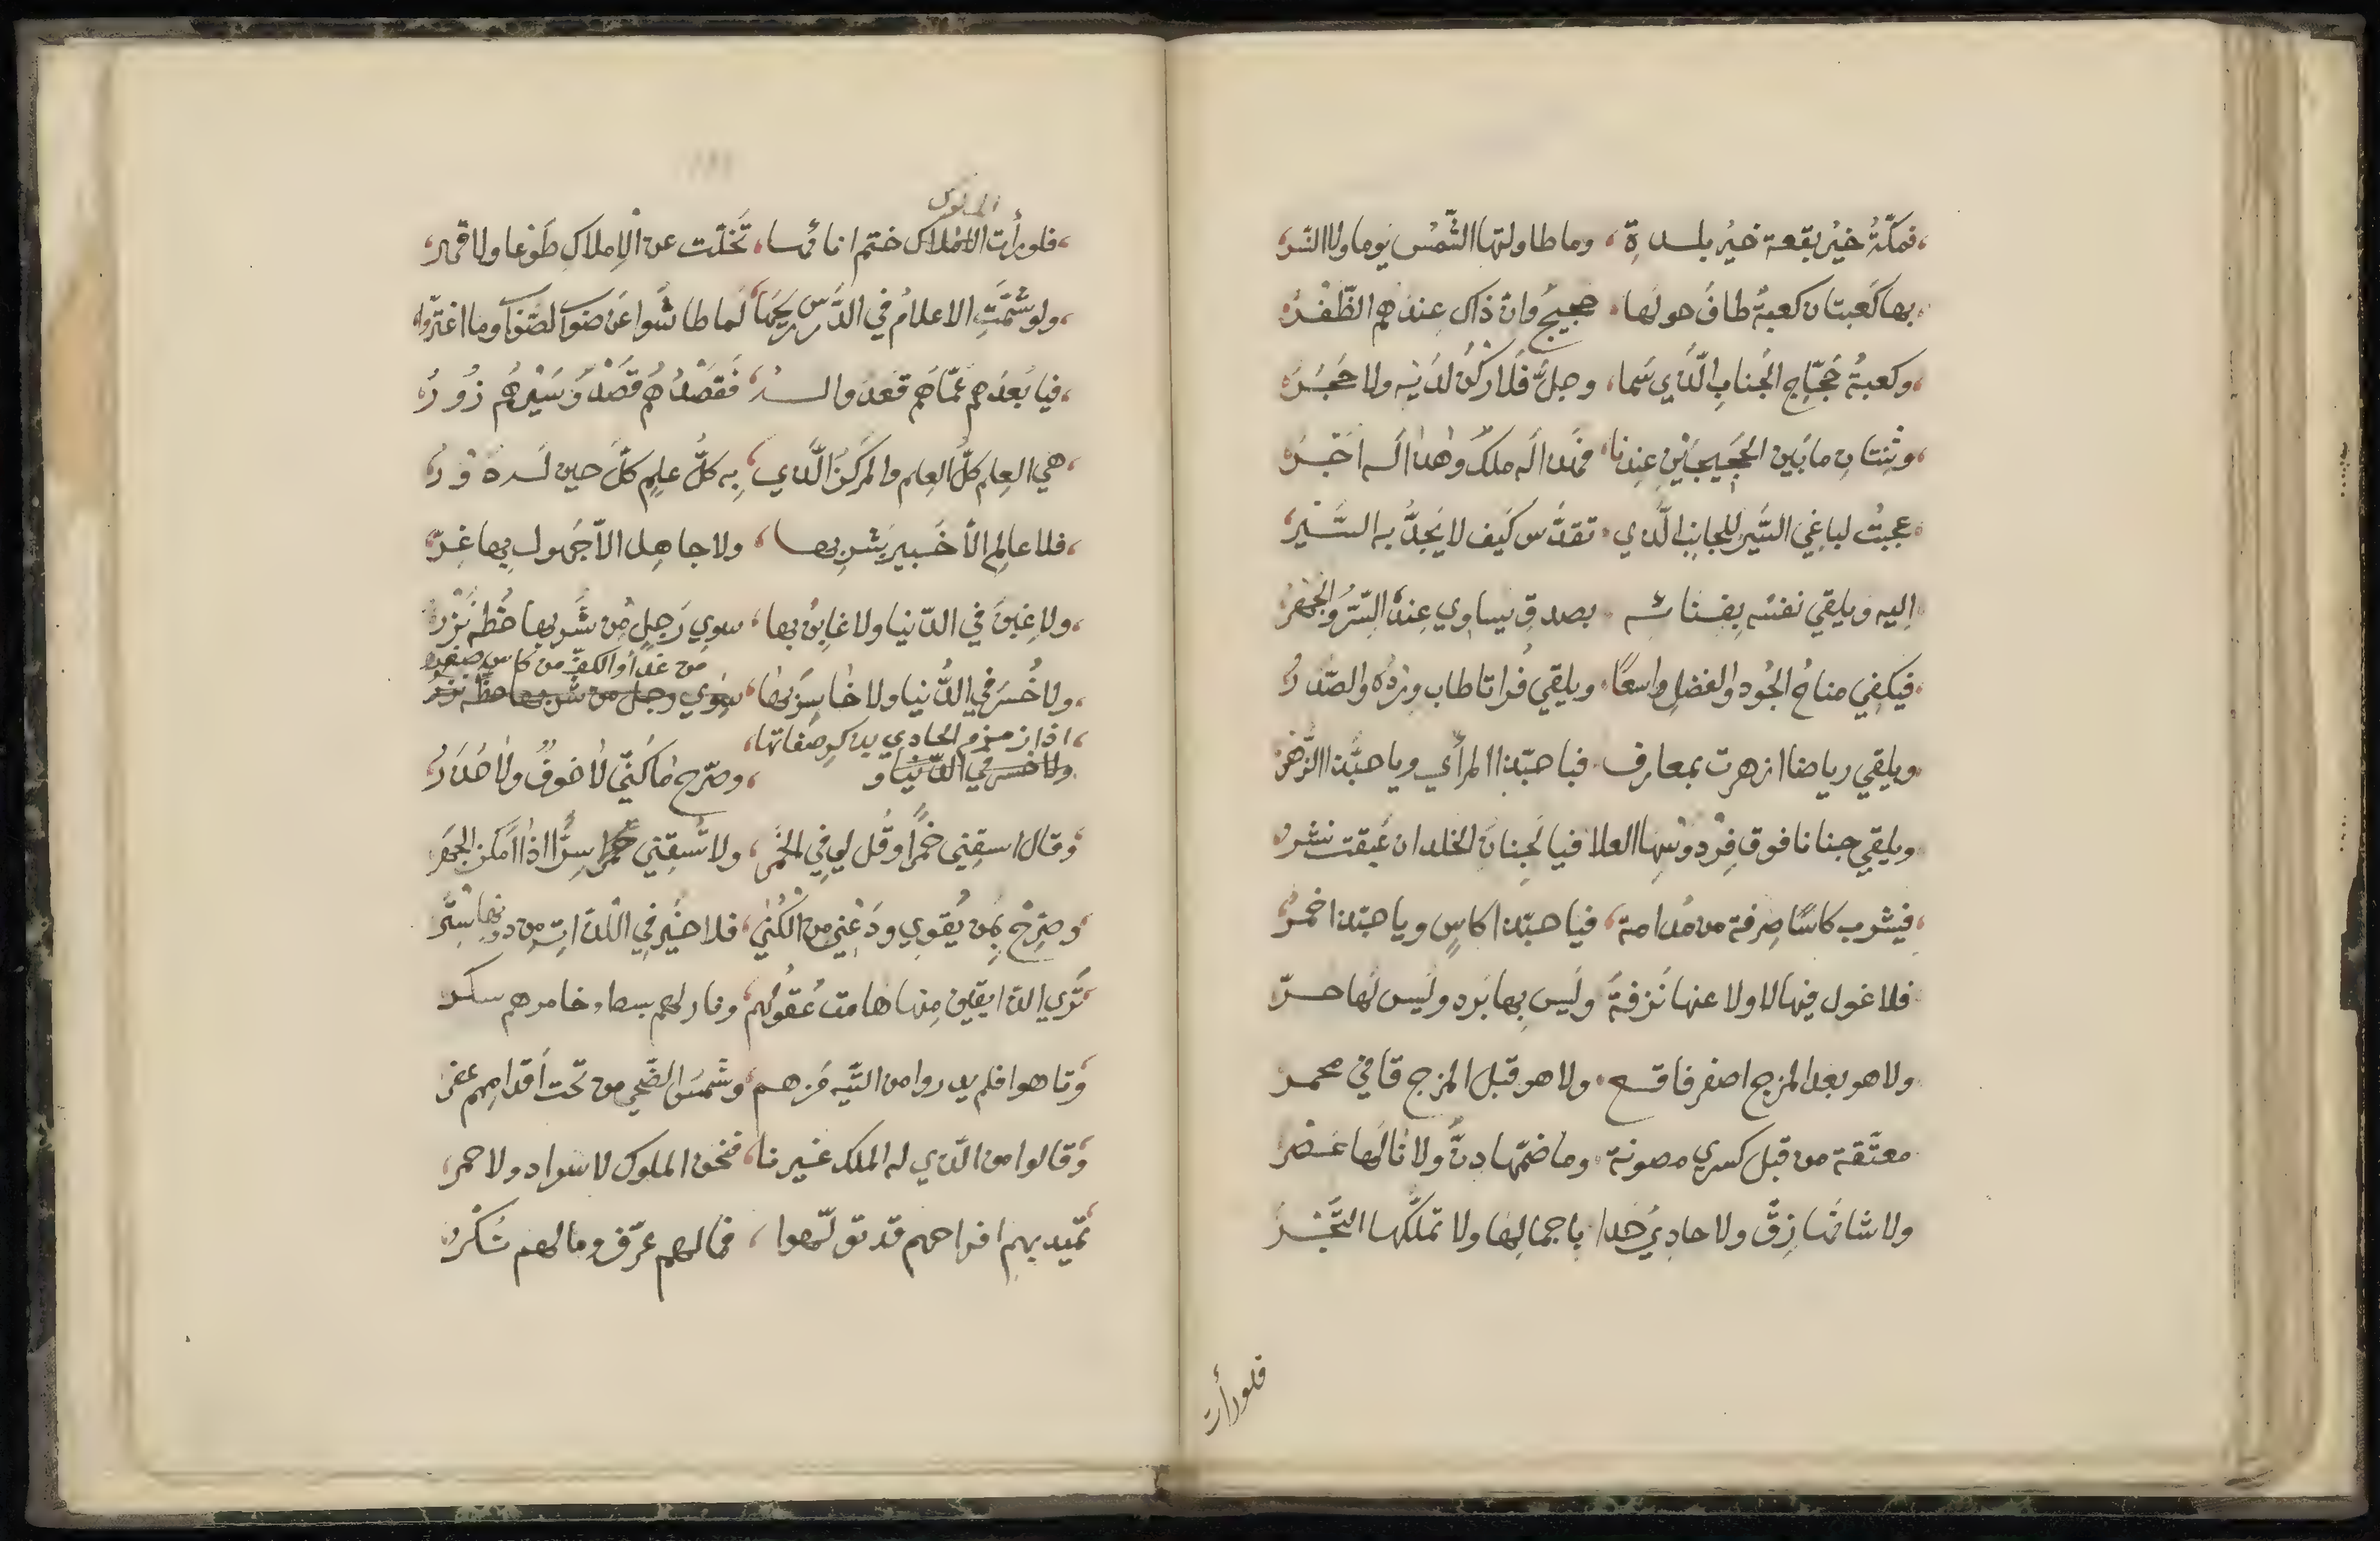 فمكّةُ خيرُ بقعة خيرُ بلدةِ، وما طاولتها الشّمس يوما ولا النّسر
بها كعبتان كعبةٌ طافَ حولها، حجيجٌ وانّ ذاك عندهم الظّفْرُ
وكعبةُ حُجّاج الجنابِ الّذي سَما، وجلّ فلا ركنٌ لدَيْه ولا حَجَرُ
وشِتّان مابَين الحَجيجَيْنِ عِندنا، فهذا لَه ملكٌ وهٰذا لَه اجْرُ
عجبتُ لباغِي السَّير للجانبِ الّذي، تقدَّس كَيف لا يَجِدُّ به السَّيْر
اِليه ويلقي نفسَه بِفنائه، بصدقٍ يساوي عِندهُ السِّرُّ والجَهر
فيلقي مناخُ الجُود والفضلِ واسعًا، ويلقي فُراتا طاب وِرْدُه والصّدرُ
ويلقي رياضا ازهرت بمعارف، فياحبّذا المرأي وياحبَّذا الزّهرُ
ويلقي جنانا فوق فِردوسِها العلا فيا لَجِنانَ الخلد ان عَبقت نشر
فيشرب كاسًا صِرفة من مُدامة، فياحبّذا كاسٍ وياحبّذا خمرُ
فلا غول فيها لا ولا عنها نَزفةٌ ولَيس بها بَرد ولَيس لَها حرّ
ولا هو بعد المزج اصفر فاقع، ولا هو قبل المزج قاني محمر
معتّقة من قبل كسري مصونة، وما ضمّها دنٌّ ولا نالَها عَصْر
ولا شانَها زِقٌّ ولا حادِيُ حدا، باجمالِها ولا تملّكها التَّجْرُ
فلو رأت
الملوك
فلو رأت الاملاك ختم انائها، تَخلّت عن الاِملاكِ طَوْعا ولا قهر
ولو شَمّتِ الاعلامُ في الدَّرس رِيحَها، لَما طاشُوا عَن صَوب الصّواب وما اغترّوا
فيا بُعدَهم عمّاهم قعدوا له، فَقَصْدُهُم قَصْدٌ وَسَيْرهُم زُورُ
هي العِلم كلُّ العِلم والمركزُ الّذي، بِه كلُّ علمٍ كلّ حين لَه دَوْرُ
فلا عالِم الاّ خَبير بشربها، ولا جاهِل الاّ جَهول بِها غِرّ
ولا غبنَ في الدّنيا ولا غابنٌ بها، سوي رَجلٍ مِن شُربها حَظّه نَزْرُ
من غدا والكفّ من كاس صفر
ولا خُسرَ في الدُّنيا ولا خاسِرٌ بها، سِوي رجل من شربها حظّه نزر
اذا زمزم الحادي بذكر صفاتها،
ولا خسر في الدّنيا و، وصرّح ما كَنّي لا خوفٌ ولا حَذَرُ
وقال اسقِني خمرًا وقُل لي هي الخمر، ولا تُسقِني خمرا سِرًّا اذا اَمكن الجهر
وصَرِّح بمن تُهوي ودَعْني من الكُني، فلا خيْر في اللّذّاتِ من دونها سِتْر
تَري الذّائِقين مِنها هامت عُقولُهم، ونازلهم بسط وخامرهم سكر
وتاهوا فلم يدروا من التّيه مَن هم، وشَمسَ الضّحي من تَحت أقدامِهم عفر
وقالوا من الّذي له الملك غيرنا، فنحن الملوك لا سواد ولا حمر
تميد بهم افراحهم قد تولّهوا، فمالهم عرف ومالهم نُكْرُ